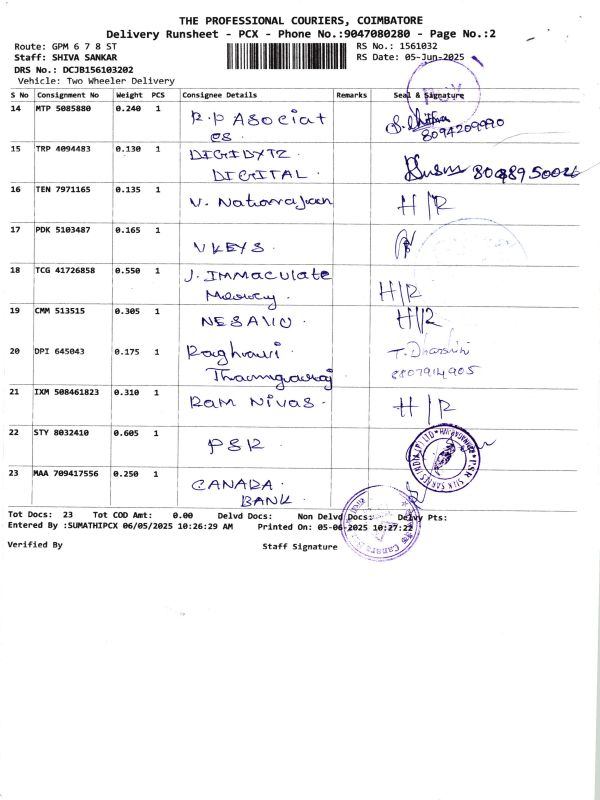 THE PROFESSIONAL COURIERS, COIMBATORE
Delivery Runsheet - PCX - Phone No.:9047080280 - Page No.:2
Route: GPM 6 7 8 ST
RS No.: 1561032
Staff: SHIVA SANKAR
RS Date: 05-Jun-2025
DRS No.: DCJB156103202
Vehicle: Two Wheeler Delivery
S No Consignment No Weight PCS Consignee Details Remarks Seal & Signature
14 MTP 5085880 0.240 1 R.P Asociat
es. 8094209990
15 TRP 4094483 0.130 1 DIGIDYTZ
DIGITAL.
16 TEN 7971165 0.135 1 V. Natarajan H/R
17 PDK 5103487 0.165 1 VKEYS.
18 TCG 41726858 0.550 1 J. IMMaculate H/R
19 CMM 513515 0.305 1 H/R
20 DPI 645043 0.175 1 T. Dharshini
8807914905
21 IXM 508461823 0.310 1 RAM NIVAS. H/R
22 STY 8032410 0.605 1 PSR
23 MAA 709417556 0.250 1 CANARA
BANK.
Tot Docs: 23 Tot COD Amt: 0.00 Delvd Docs: Non Delvd Docs: Delvy Pts:
Entered By :SUMATHIPCX 06/05/2025 10:26:29 AM Printed On: 05-06-2025 10:27:22
Verified By Staff Signature